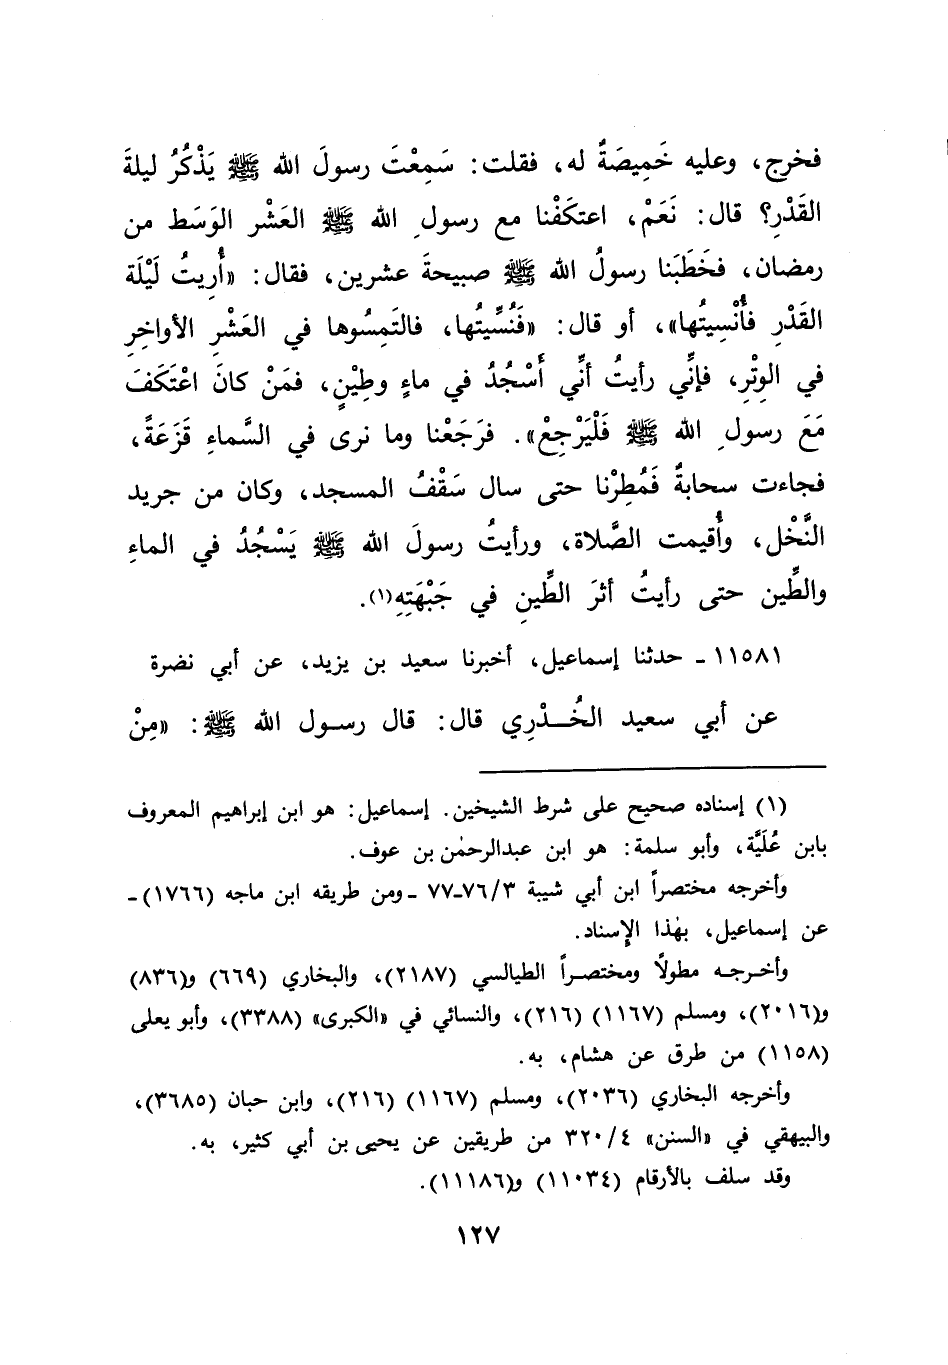 فخرج، وعليه خَمِيصَةٌ له، فقلت: سَمِعْتَ رسولَ الله ﷺ يَذْكُرُ ليلةَ
القَدْرِ؟ قال: نَعَمْ، اعتكَفْنا مع رسولِ الله ﷺ العَشْر الوَسَط من
رمضان، فخَطَبَنا رسولُ الله ﷺ صبيحةَ عشرين، فقال: «أُرِيتُ لَيْلَة
القَدْرِ فأُنْسِيتُها»، أو قال: «فَنُسِّيتُها، فالتَمِسُوها في العَشْرِ الأواخِرِ
في الوِتْرِ، فإنِّي رأيتُ أنِّي أَسْجُدُ في ماءٍ وطِيْنٍ، فمَنْ كانَ اعْتَكَفَ
مَعَ رسولِ الله ﷺ فَلْيَرْجِعْ». فرَجَعْنا وما نرى في السَّماءِ قَزَعَةً،
فجاءت سحابةٌ فَمُطِرْنا حتى سال سَقْفُ المسجد، وكان من جريد
النَّخْل، وأُقيمت الصَّلاة، ورأيتُ رسولَ الله ﷺ يَسْجُدُ في الماءِ
والطِّين حتى رأيتُ أثرَ الطِّينِ في جَبْهَتِهِ(١).
١١٥٨١ - حدثنا إسماعيل، أخبرنا سعيد بن يزيد، عن أبي نضرة
عن أبي سعيد الخُـدْرِي قال: قال رسـول الله ﷺ: «مِنْ
(١) إسناده صحيح على شرط الشيخين. إسماعيل: هو ابن إبراهيم المعروف
بابن عُلَيَّة، وأبو سلمة: هو ابن عبدالرحمٰن بن عوف.
وأخرجه مختصراً ابن أبي شيبة ٧٦/٣-٧٧ -ومن طريقه ابن ماجه (١٧٦٦)-
عن إسماعيل، بهٰذا الإِسناد.
وأخـرجـه مطولًا ومختصـراً الطيالسي (٢١٨٧)، والبخاري (٦٦٩) و(٨٣٦)
و(٢٠١٦)، ومسلم (١١٦٧) (٢١٦)، والنسائي في «الكبرى» (٣٣٨٨)، وأبو يعلى
(١١٥٨) من طرق عن هشام، به.
وأخرجه البخاري (٢٠٣٦)، ومسلم (١١٦٧) (٢١٦)، وابن حبان (٣٦٨٥)،
والبيهقي في «السنن» ٣٢٠/٤ من طريقين عن يحيى بن أبي كثير، به.
وقد سلف بالأرقام (١١٠٣٤) و(١١١٨٦).
١٢٧